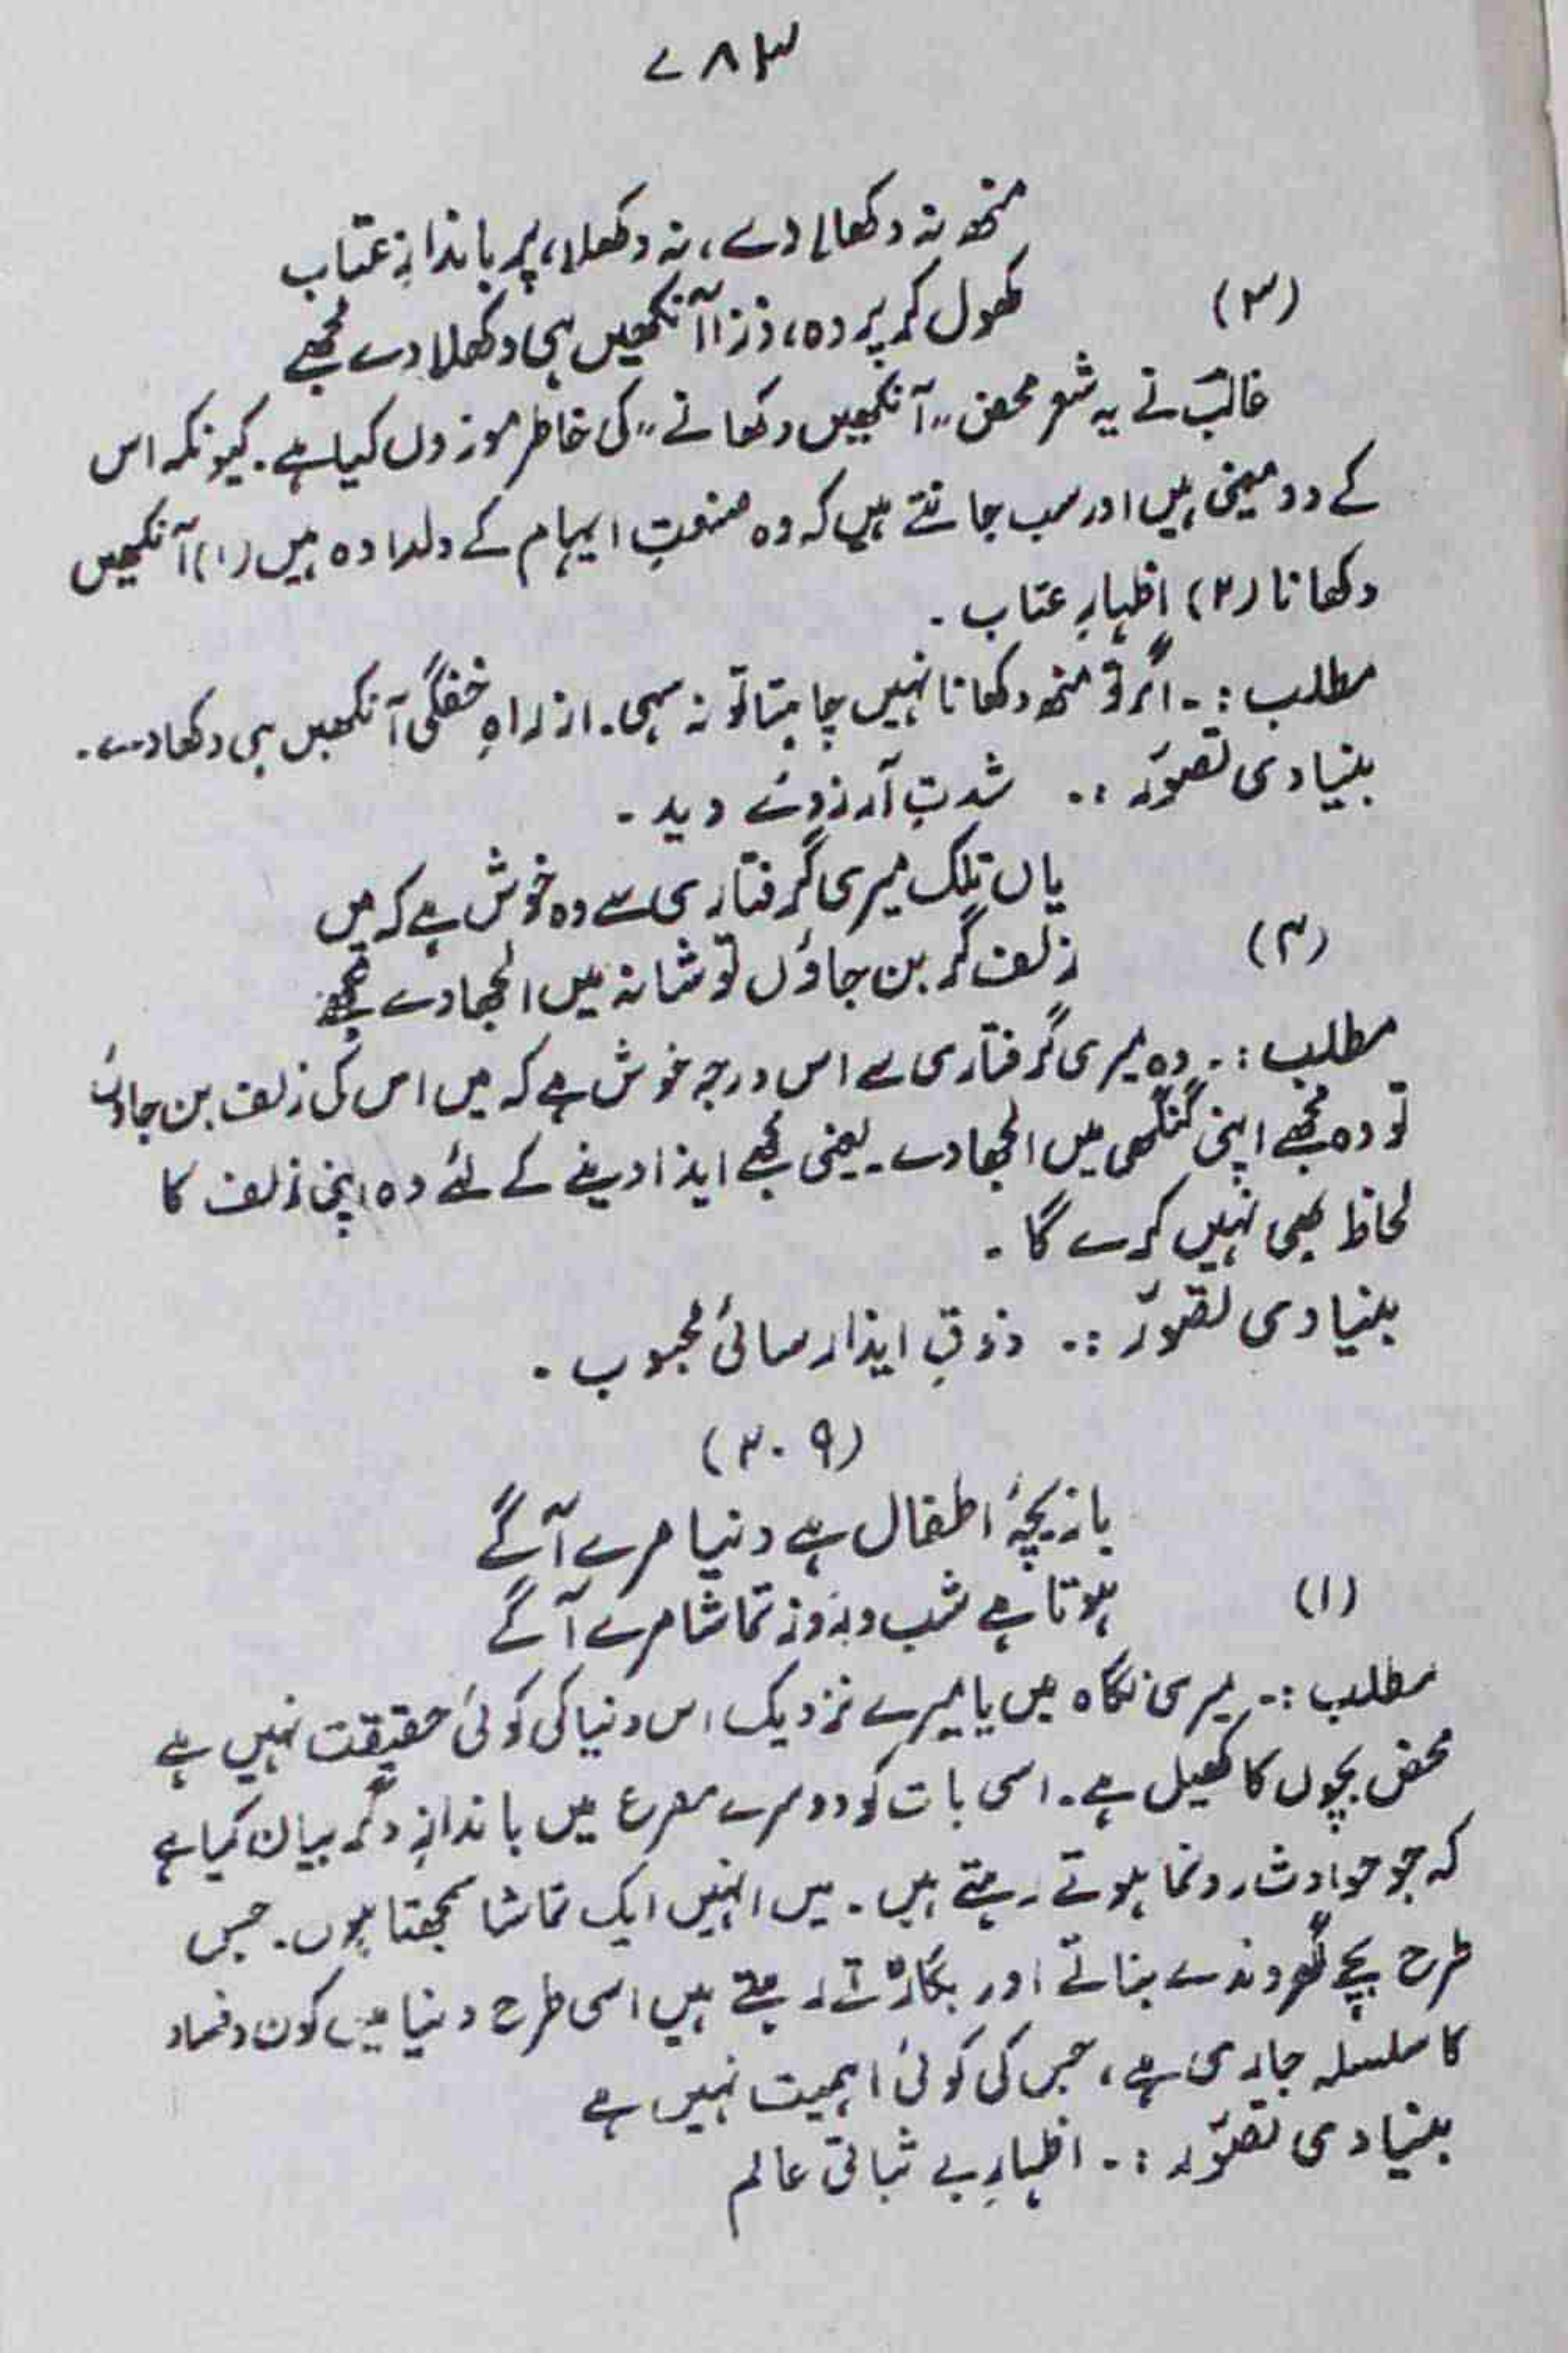 ۷۸۳
منھ نہ دکھلا دے، نہ دکھلا، پر باندازِ عتاب
(۳)
کھول کر پردہ، ذرا آنکھیں ہی دکھلا دے مجھے
غالبؔ نے یہ شعر محض "آنکھیں دکھانے" کی خاطر موزوں کیا ہے۔ کیونکہ اس
کے دو معنی ہیں اور سب جانتے ہیں کہ وہ صنعتِ ایہام کے دلدادہ ہیں (۱) آنکھیں
دکھانا (۲) اظہارِ عتاب۔
مطلب :۔ اگر تو منھ دکھانا نہیں چاہتا تو نہ سہی۔ از راہِ خفگی آنکھیں ہی دکھا دے۔
بنیادی تصوّر :۔ شدتِ آرزوئے دید۔
یاں تلک میری گرفتاری سے وہ خوش ہے کہ میں
(۴)
زلف گر بن جاؤں تو شانہ میں الجھا دے مجھے
مطلب :۔ وہ میری گرفتاری سے اس درجہ خوش ہے کہ میں اس کی زلف بن جاؤں
تو وہ مجھے اپنی کنگھی میں الجھا دے۔ یعنی مجھے ایذا دینے کے لئے وہ اپنی زلف کا
لحاظ بھی نہیں کرے گا۔
بنیادی تصوّر :۔ ذوقِ ایذا رسائی محبوب۔
(۲۰۹)
بازیچۂ اطفال ہے دنیا مرے آگے
(۱)
ہوتا ہے شب و روز تماشا مرے آگے
مطلب :۔ میری نگاہ میں یا میرے نزدیک اس دنیا کی کوئی حقیقت نہیں ہے
محض بچوں کا کھیل ہے۔ اسی بات کو دوسرے مصرع میں باندازِ دگر بیان کیا ہے
کہ جو حوادث رونما ہوتے رہتے ہیں۔ میں انہیں ایک تماشا سمجھتا ہوں۔ جس
طرح بچے گھروندے بناتے اور بگاڑتے رہتے ہیں اسی طرح دنیا میں کون و فساد
کا سلسلہ جاری ہے، جس کی کوئی اہمیت نہیں ہے
بنیادی تصوّر :۔ اظہارِ بے ثباتی عالم